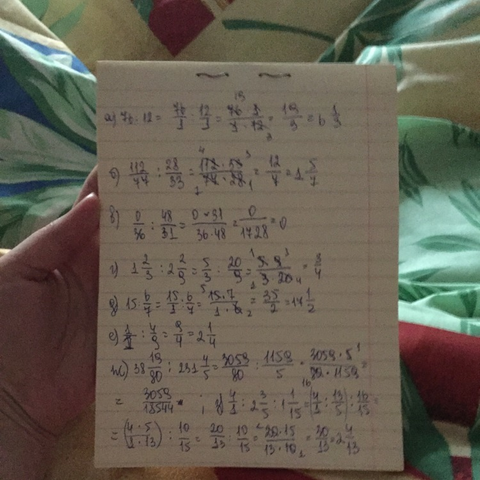 а) 76 : 12 = 76/1 : 12/1 = 76 · 1/1 · 12 = 19/3 = 6 1/3
б) 112/77 : 28/33 = 112 · 33/77 · 28 = 12/7 = 1 5/7
в) 0/36 : 48/31 = 0 · 31/36 · 48 = 0/1728 = 0
г) 1 2/3 : 2 2/9 = 5/3 : 20/9 = 5 · 9/3 · 20 = 3/4
д) 15 : 6/7 = 15/1 : 6/7 = 15 · 7/1 · 6 = 35/2 = 17 1/2
е) : 4/9 = 9/4 = 2 1/4
ж) 38 19/80 : 231 4/5 = 3059/80 : 1159/5 = 3059 · 5/80 · 1159 =
= 3059/18544 ; 4/1 : 2 3/5 : 1 1/15 = (4/1 : 13/5) : 16/15 =
= (4 · 5/1 · 13) : 10/15 = 20/13 : 10/15 = 20 · 15/13 · 10 = 30/13 = 2 4/13